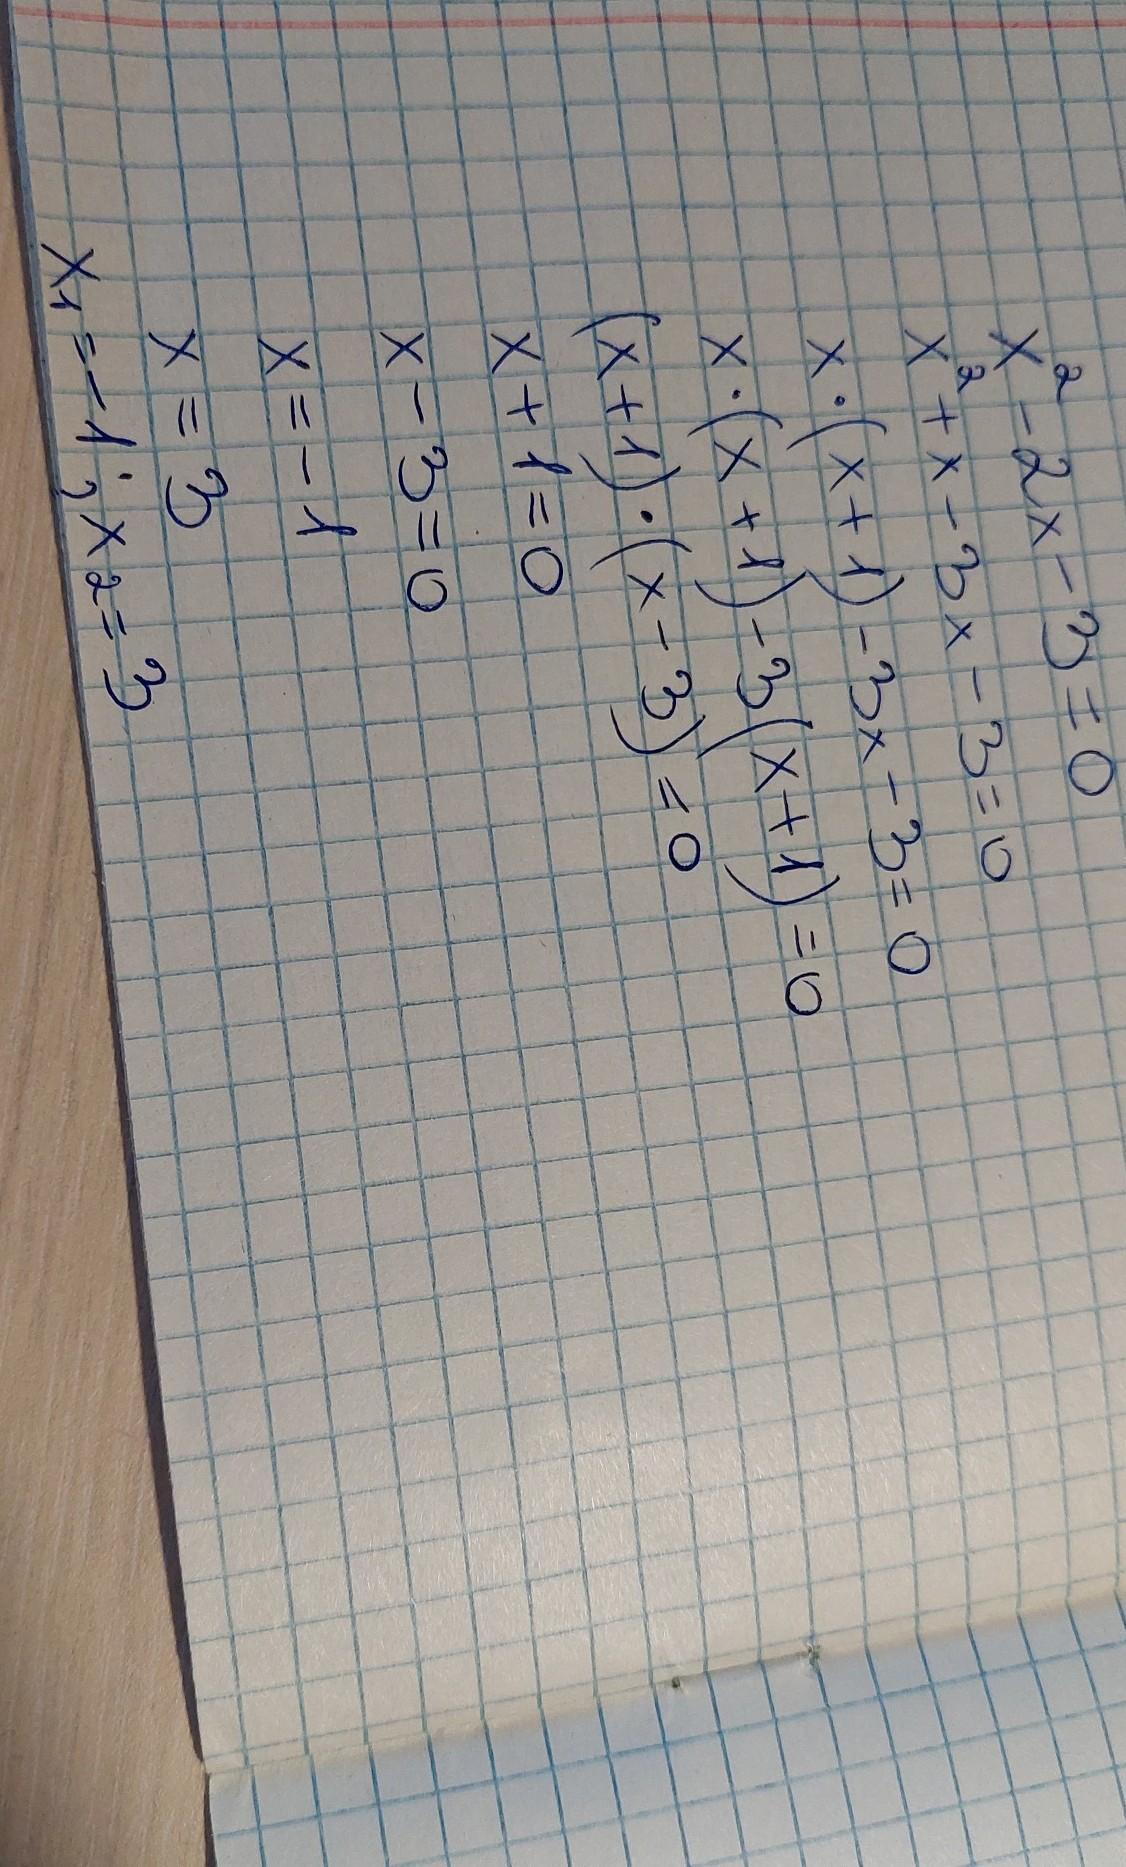 x² - 2x - 3 = 0
x² + x - 3x - 3 = 0
x · (x + 1) - 3x - 3 = 0
x · (x + 1) - 3(x + 1) = 0
(x + 1) · (x - 3) = 0
x + 1 = 0
x - 3 = 0
x = -1
x = 3
x₁ = -1; x₂ = 3